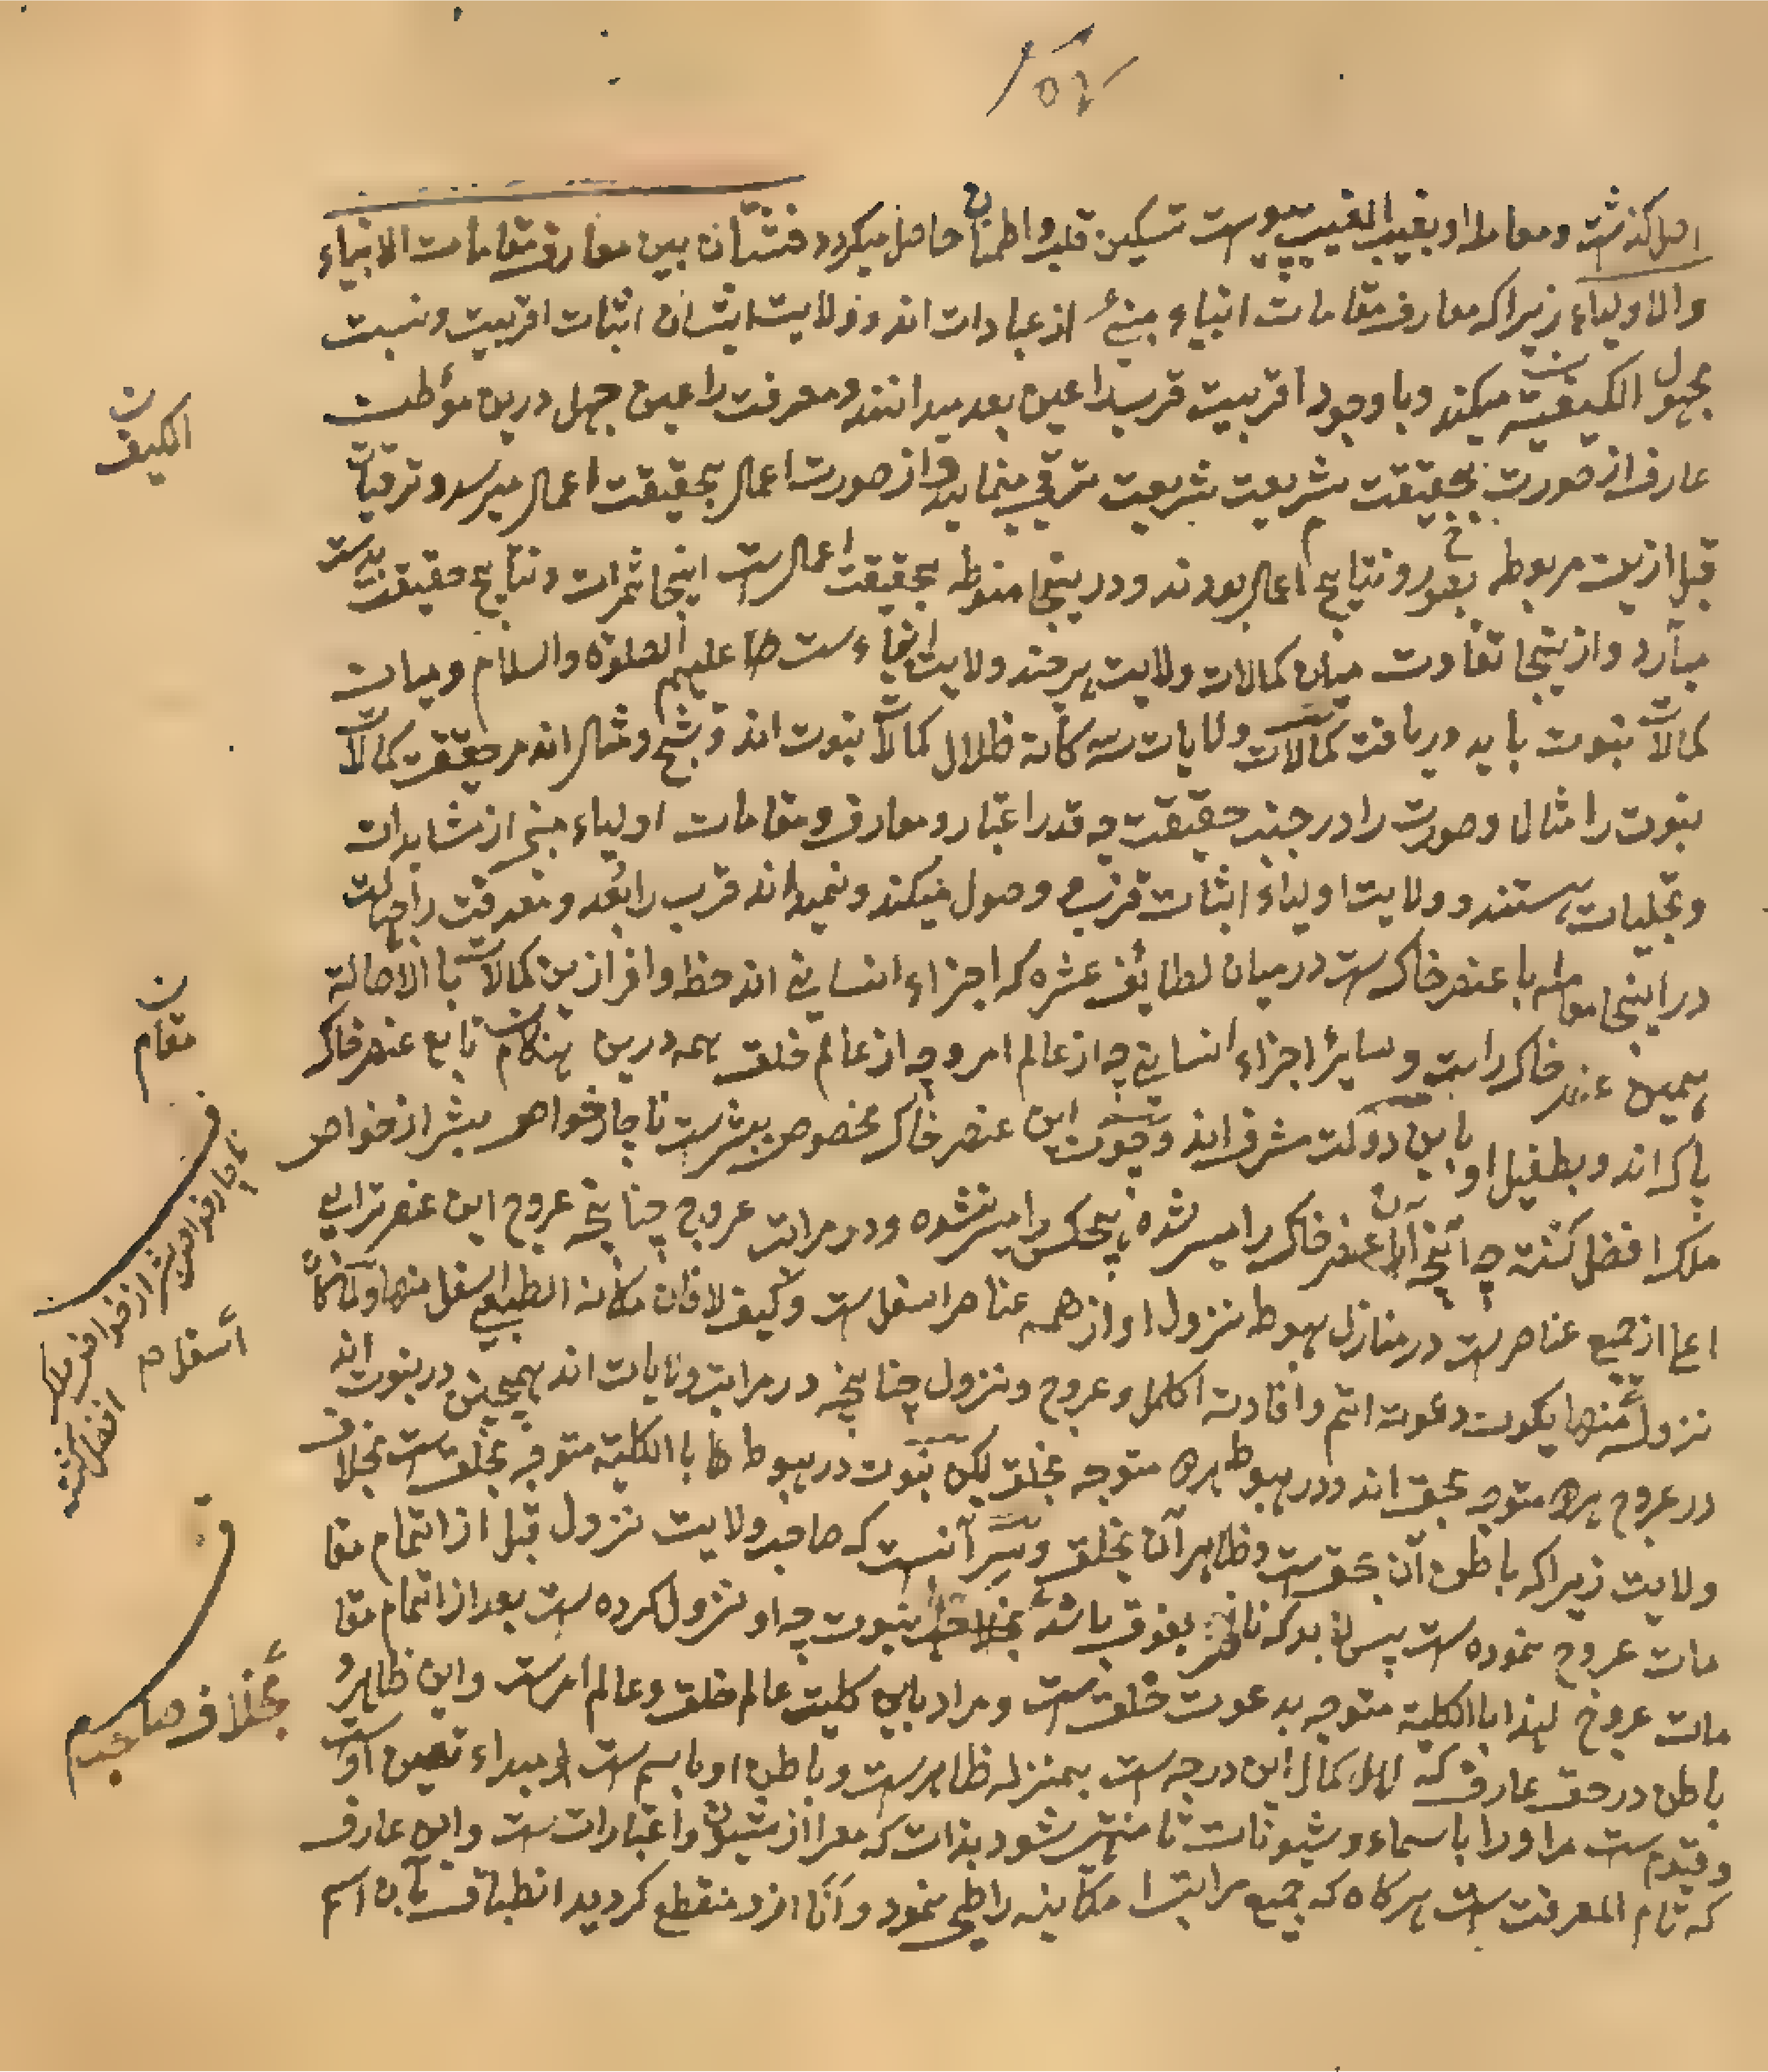 ۱۵۶
اصل گذشت و معامله او بغیب الغیب پیوست تسکین قلب و اطمنان حاصل میکردد فشتّان بین معارف مقامات الانبیاء
والاولیاء زیراکه معارف مقامات انبیاء مبنیٔ از عبادات اند و ولایت ایشان اثبات اقربیت و نسبت
مجهول الکیفیت میکند و با وجود اقربیت قرب را عین بعد میدانند و معرفت را عین جهل درین موطن
عارف از صورت بحقیقت شریعت ترقی مینماید و از صورت اعمال بحقیقت اعمال میرسد و ترقیات
قبل ازین مربوط بصور و نتایج اعمال بودند و درینجا منوط بحقیقت اعمال ست اینجا ثمرات و نتایج حقیقت بدست
میآرد و ازینجا تفاوت میان کمالات ولایت هرچند ولایت انبیاء ست علیهم الصلوة والسلام و میان
کمالات نبوت باید دریافت کمالات ولایات سه کانه ظلال کمالات نبوت اند و شبح و مثال اند مر حقیقت کمالات
نبوت را مثال و صورت را در جنب حقیقت چه قدر اعتبار و معارف و مقامات اولیاء مبنی از مشاهدات
و تجلیات هستند و ولایت اولیاء اثبات قرب و وصول میکند و نمیداند قرب را بُعد و معرفت را جهالت
در اینجا معامله با عنصر خاک ست در میان لطایف عشره که اجزاء انسانی اند حظ وافر ازین کمالات با الاصالة
همین عنصر خاک راست و سایر اجزاء انسانی چه از عالم امر و چه از عالم خلق همه درین هنکام تابع عنصر خاک
پاک اند و بطفیل او باین دولت مشرف اند و چون این عنصر خاک مخصوص ببشرست ناچار خواص بشر از خواص
ملک افضل کشته چه آنچه این عنصر خاک را میسر شده هیچکس را میسر نشده و در مراتب عروج چنانچه عروج این عنصر ترابی
اعلا از جمیع عناصر ست در منازل هبوط نزول او از همه عناصر اسفل ست و کیف لا فان مکانه الطبیعی اسفل منها و لما کان
نزوله منها یکون دعوته اتم و افادته اکمل و عروج و نزول چنانچه در مراتب ولایات اند همچنین در نبوت اند
در عروج هر دو متوجه بحق اند و در هبوط هر دو متوجه بخلق لیکن نبوت در هبوط با الکلیة متوجه بخلق ست بخلاف
ولایت زیراکه باطن آن بحق ست و ظاهر آن بخلق و سرّ آنست که صاحب ولایت نزول قبل از اتمام مقا
مات عروج نموده ست پس لابد که نکران بفوق باشد بخلاف نبوت چه او نزول کرده ست بعد از اتمام مقا
مات عروج لهذا با الکلیة متوجه بدعوت خلق ست و مراد باین کلیت عالم خلق و عالم امرست و این ظاهر و
باطن در حق عارف که کمال این درجه ست بمنزله ظاهرست و باطن او با اسم ست او مبداء تعین اوست
و قیوم ست مر او را با اسماء و شیونات تا منتهی شود بذات که معرا از شیون و اعتبارات ست و این عارف
که تام المعرفت ست هرکاه که جمیع مراتب امکانیه را طی نمود و انا از و منقطع کردید انطباق بآن اسم
الکیف
مقام
ناچار خواص بشر از خواص ملک افضل کشته
اسفل
بخلاف صاحب